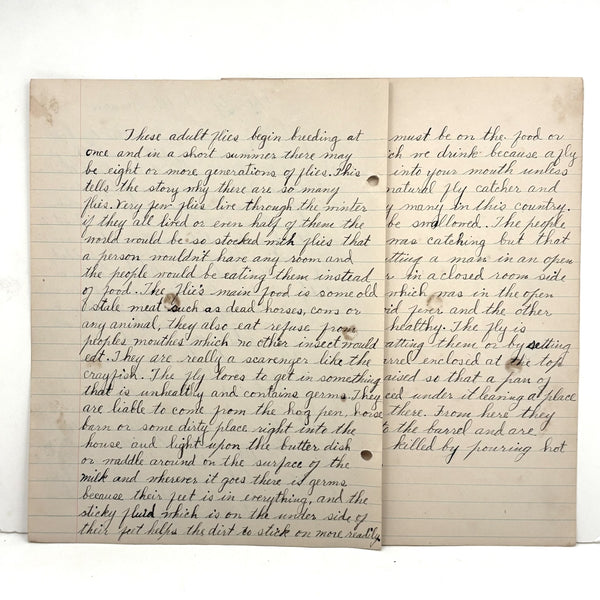 These adult flies begin breeding at
once and in a short summer there may
be eight or more generations of flies. This
tells the story why there are so many
flies. Very few flies live through the winter
if they all lived or even half of them the
world would be so stocked with flies that
a person wouldn't have any room and
the people would be eating them instead
of food. The flie's main food is some old
stale meat such as dead horses, cows or
any animal, they also eat refuse from
peoples mouthes which no other insect would
eat. They are really a scavenger like the
crayfish. The fly loves to get in something
that is unhealthy and contains germs. They
are liable to come from the hog pen, horse
barn or some dirty place right into the
house and light upon the butter dish
or waddle around on the surface of the
milk and wherever it goes there is germs
because their feet is in everything, and the
sticky fluid which is on the under side of
their feet helps the dirt to stick on more readily
must be on the food or
ich we drink because a fly
into your mouth unless
natural fly catcher and
y many in this country.
be swallowed. The people
was catching but that
utting a man in an open
r in a closed room side
which was in the open
id fever and the other
healthy. The fly is
atting them or by setting
arrel enclosed at the top
aised so that a pan of
ced under it leaving a place
there. From here they
to the barrel and are
killed by pouring hot